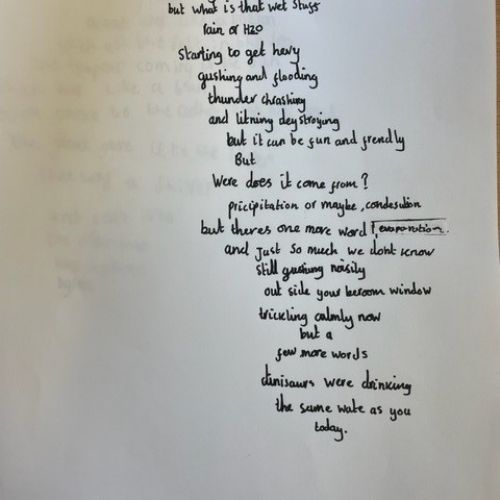 but what is that wet stuff
rain or H2O
Starting to get hevy
gushing and flooding
thunder chrashing
and litning deystroying
but it can be fun and frendly
But
Were does it come from?
pricipitation or maybe, condesution
but theres one more word evaporation.
and just so much we dont know
still gushing noisily
out side your beroom window
trickling calmly now
but a
few more words
dinisaurs were drinking
the same wate as you
today.